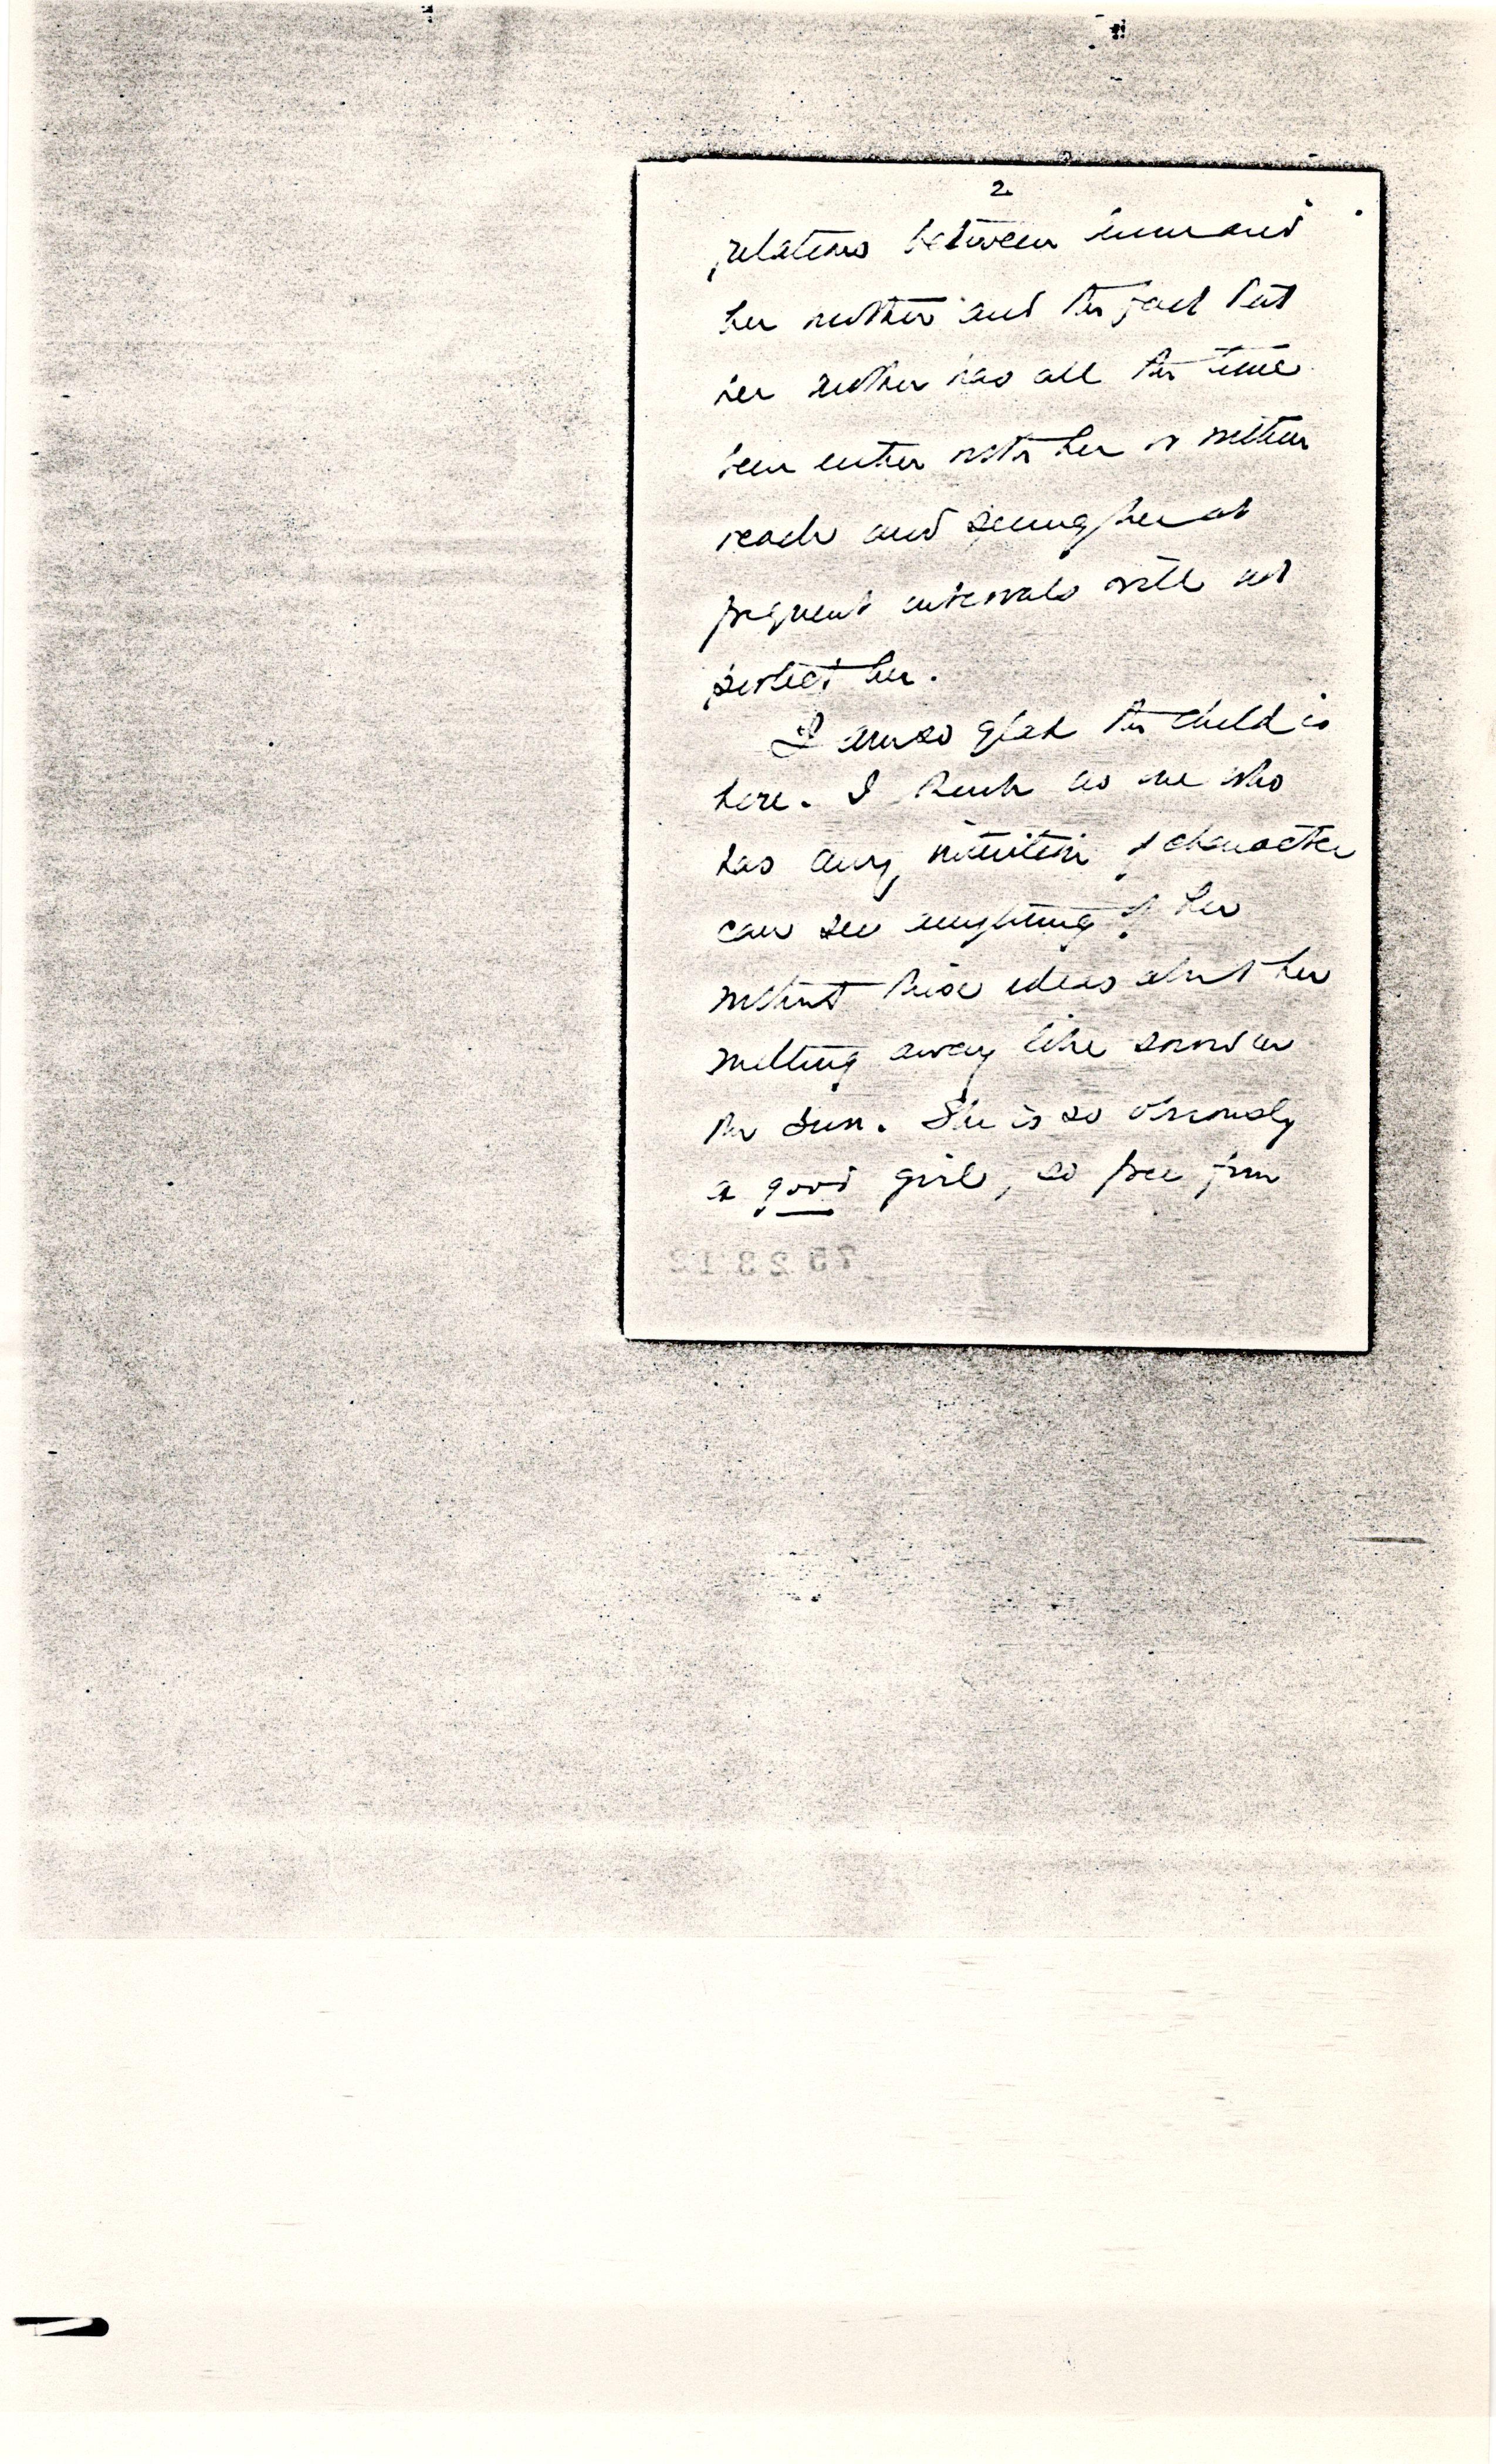 2
relations between him and
her mother and the fact that
her mother has all the time
been either with her or within
reach and seeing her at
frequent intervals will not
protect her.
I am so glad the child is
here. I think no one who
has any intuition of character
can see anything of her
without those ideas about her
melting away like snow in
the sun. She is so obviously
a good girl, so free from
75 28 12